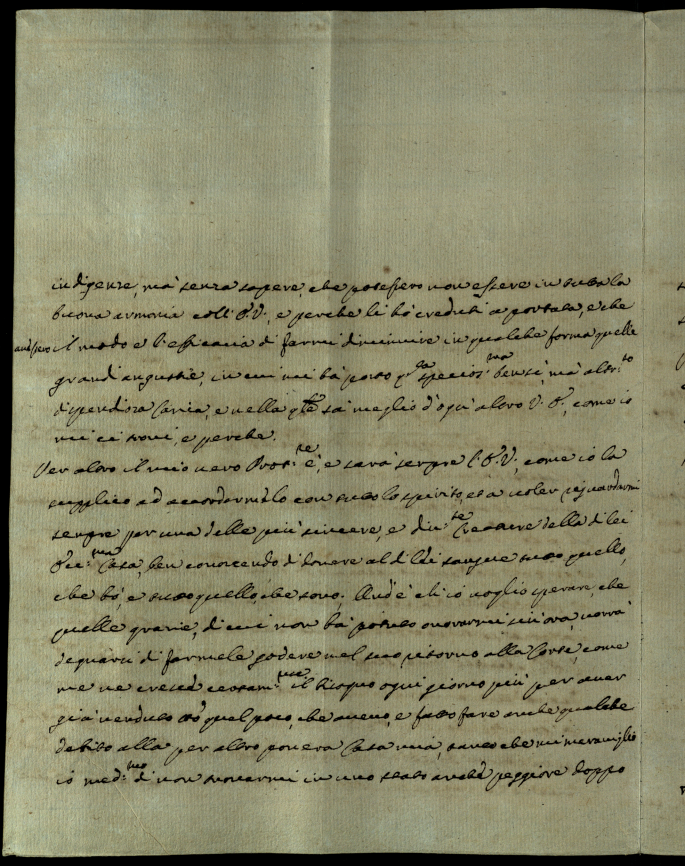 indigenze, mà senza sapere, che potessero non essere in tutta la
buona armonia coll' E. V., e perche li hò creduti a portata, e che
avessero il modo e l'efficacia di farmi diminuire in qualche forma quelle
grandi angustie, in cui mi hà posto q.ta specios.ma bensi, mà altr.to
dispendiosa Carica, e nella q.le sà meglio d'ogn' altro V. E., come io
mi ci trovi, e perche.
Per altro il mio vero Prot.re è, e sarà sempre l'E. V., come io la
supplico ad accordarmelo con tutto lo spirito, et a voler riguardarmi
sempre per una delle più sincere, e div.te Creature della di lei
Ecc.ma Casa, ben conoscendo di dovere al di lei sangue tutto quello,
che hò, e tutto quello, che sono. Ond' è ch' io voglio sperare, che
quelle grazie, di cui non hà potuto onorarmi sin' ora, vorrà
degnarsi di farmele godere nel suo ritorno alla Corte, come
me ne cresce certam.te il bisogno ogni giorno più per aver
già venduto quel poco, che avevo, e fatto fare anche qualche
debito alla per altro povera Casa mia, tanto che mi meraviglio
io med.mo di non trovarmi in uno stato anche peggiore doppo